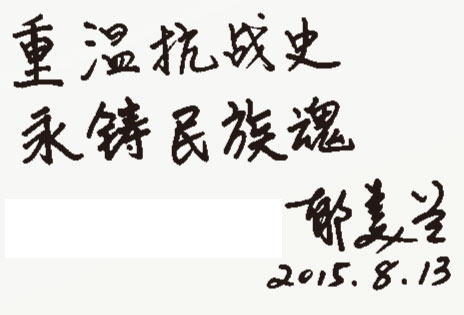 重温抗战史
永铸民族魂
郁美兰
2015.8.13